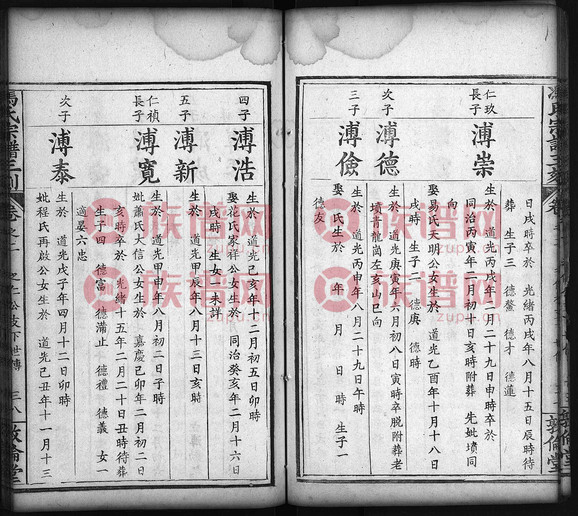 日戌時卒於 光緒丙戌年八月十五日辰時待
葬 生子三 德鰲 德才 德蓮
仁玖長子
溥崇
生於 道光丙戌年二月二十九日申時卒於
同治丙寅年二月初十日亥時附葬 先妣墳同
向
次子
溥德
娶易氏天明公女生於 道光乙酉年十月十八日
戌時 生子二 德庚 德時
道光庚寅年六月初八日寅時卒脫附葬老
墳青龍崗左亥山巳向
三子
溥儉
生於 道光丙申年八月二十九日午時
娶 氏生於 年 月 日 時 生子一
德友
四子
溥浩
生於 道光己亥年十二月初五日戌時
娶花氏家祥公女生於 同治癸亥年二月十六日
戌時 生女一未詳
五子
溥新
生於 道光甲辰年八月十三日亥時
仁禎長子
溥寬
生於 道光甲申年八月初二日子時
妣蕭氏大信公女生於 嘉慶己卯年二月初二日
亥時卒於 光緒十五年二月二十日丑時待葬
生子四 德富 德滯止 德禮 德義 女一
適晏六忠
次子
溥泰
生於 道光戊子年四月十二日卯時
妣程氏再啟公女生於 道光己丑年十一月十三
馮氏宗譜
卷之
三八
敦倫堂
族谱网
zupu.cn